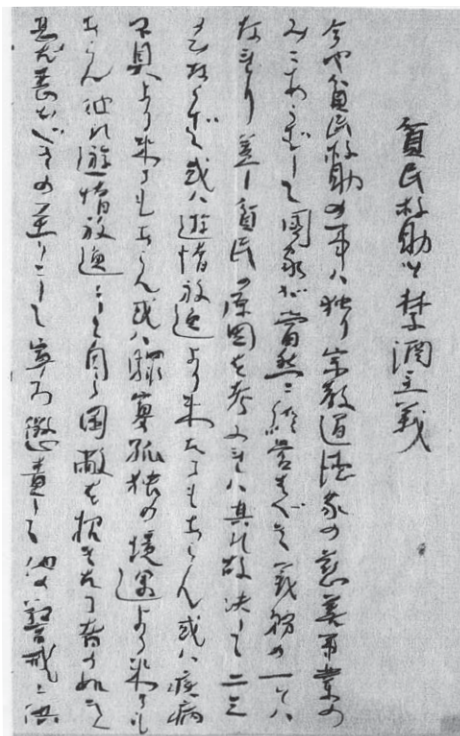 貧民救助ト禁酒主義
今や貧民救助の事ハ独り宗教道徳家の慈善事業の
みにあらずして国家が當然に経営すべき義務の一とハ
なれり蓋し貧民の原因を考ふれハ其の故決して二三
ならず或ハ遊惰放逸より来たるもあらん或ハ疾病
不具より来るもあらん或ハ鰥寡孤独の境遇より来るも
あらん彼れ遊惰放逸にして自ら困敝を招きたる者の如き
べきの至りにして寧ろ懲責して他の警戒に供